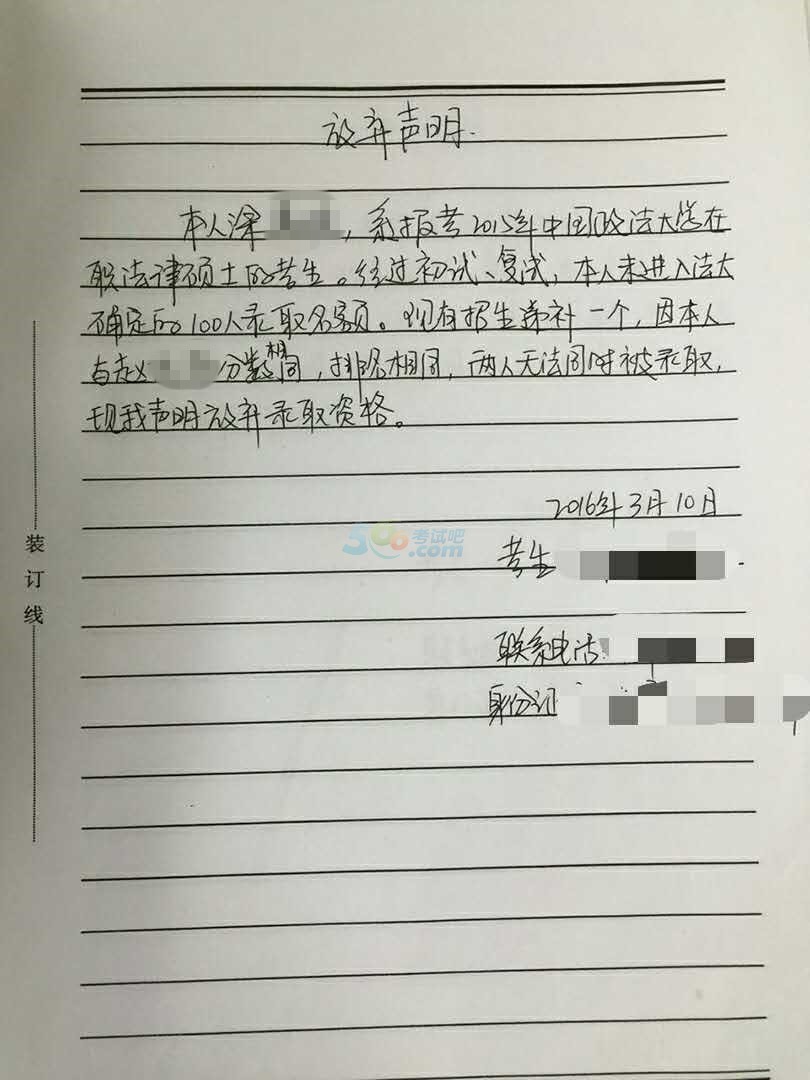 放弃声明.
本人涂 ，系报考2015年中国政法大学在
职法律硕士的考生。经过初试、复试，本人未进入法大
确定的100人录取名额。现有招生递补一个，因本人
与赵 分数相同，排名相同，两人无法同时被录取，
现我声明放弃录取资格。
2016年3月10日
考生
联系电话:
身份证
装订线
566考试吧
.com